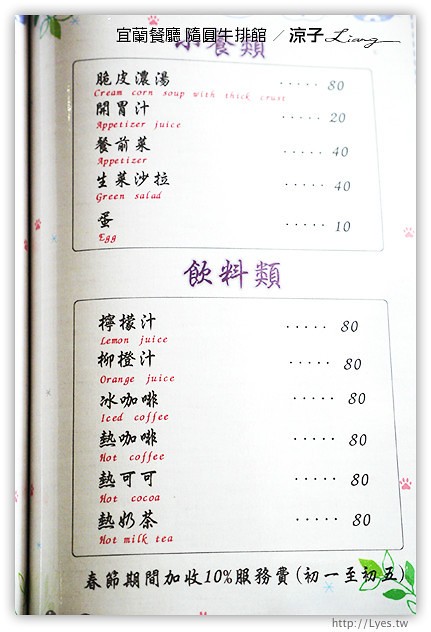 宜蘭餐廳 隨圓牛排館 ／涼子 Liang
餐類
脆皮濃湯 ····· 80
Cream corn soup with thick crust
開胃汁 ····· 20
Appetizer juice
餐前菜 ····· 40
Appetizer
生菜沙拉 ····· 40
Green salad
蛋 ····· 10
Egg
飲料類
檸檬汁 ····· 80
Lemon juice
柳橙汁 ····· 80
Orange juice
冰咖啡 ····· 80
Iced coffee
熱咖啡 ····· 80
Hot coffee
熱可可 ····· 80
Hot cocoa
熱奶茶 ····· 80
Hot milk tea
春節期間加收10%服務費(初一至初五)
http://Lyes.tw